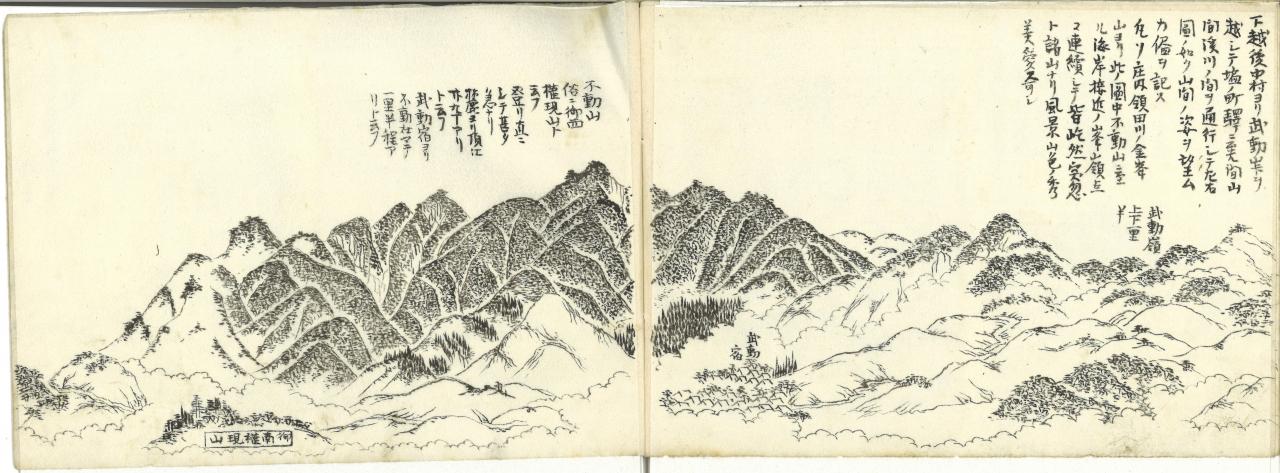 下越後中村ヨリ武動峠ヲ
越シテ塩ノ町驛ニ至ル間山
間溪川ノ間ヲ通行シテ左右
圖ノ如ク山間ノ姿ヲ望ム
カ儘ヲ記ス
凡ソ庄内領田川ノ金峯
山ヨリ此ノ圖中不動山ニ至
ル海岸接近ノ峯山領点
々連續シテ皆屹然突忽
ト諸山ナリ風景山色ノ秀
美愛スヘシ
武動嶺
上下一里
半
武動
宿
不動山
俗ニ御西
權現山ト
云フ
至リ直ニ
シテ甚タ
急ナリ
麓ヨリ頂江
九丁アリ
ト云フ
武動宿ヨリ
不動社マテ
一里半程ア
リト云フ
御南權現山